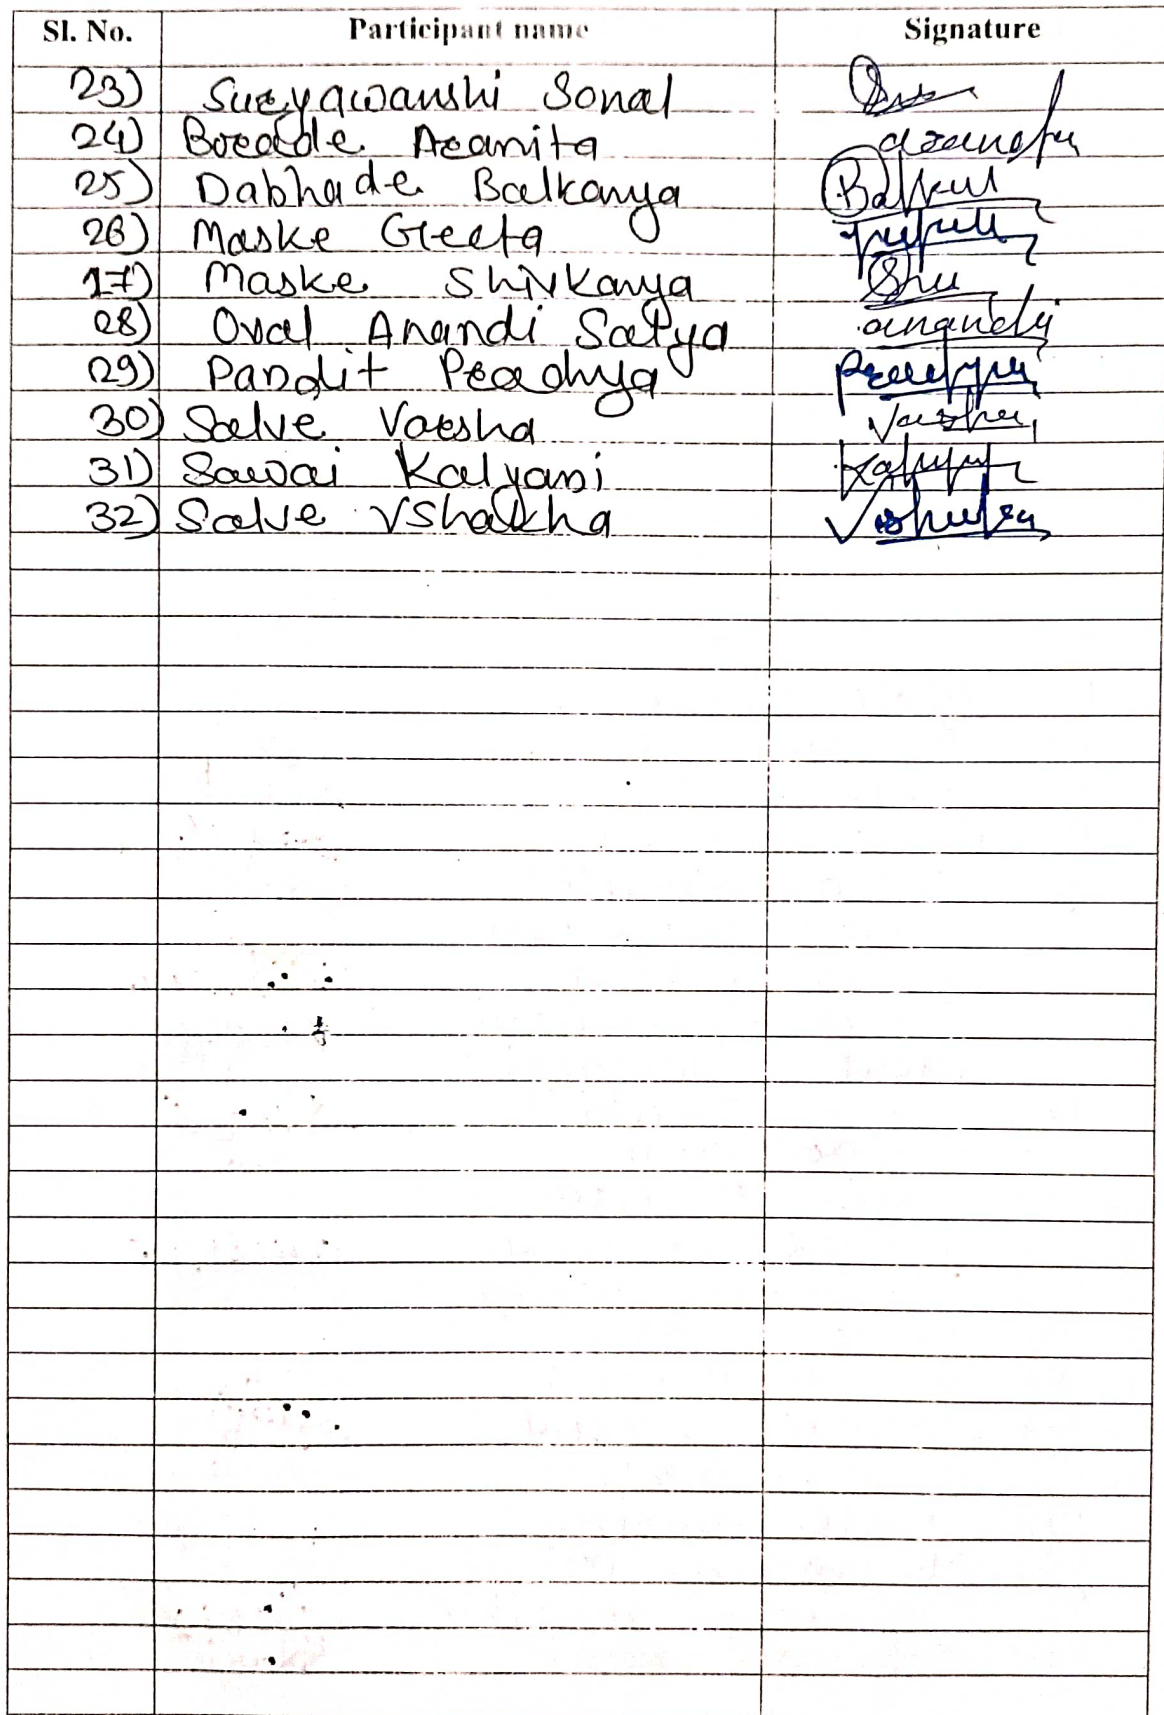 Sl. No. Participant name Signature
23) Suryawanshi Sonal
24) Borade Aranita
25) Dabhade Balkanya
26) Maske Geeta
17) Maske Shivkanya
28) Oval Anandi Satya anandi
29) Pandit Pradnya
30) Salve Varsha Varsha
31) Sawai Kalyani
32) Salve Vshakha